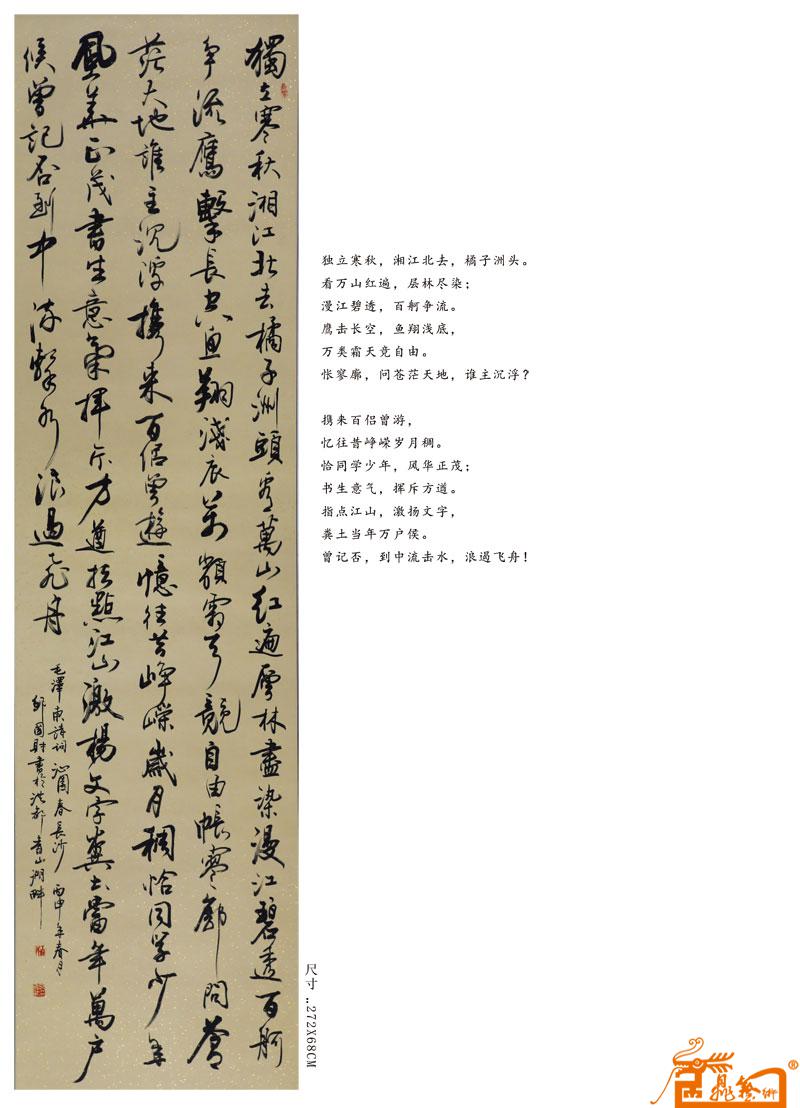 獨立寒秋湘江北去橘子洲頭看萬山紅遍層林盡染漫江碧透百舸
争流鷹擊長空魚翔淺底萬類霜天競自由帳寥廓問蒼
茫大地誰主沉浮攜来百侣曾遊憶往昔峥嵘歲月稠恰同学少年
風華正茂書生意氣揮斥方遒指點江山激揚文字糞土當年萬户
侯曾記否到中流擊水浪遏飛舟
毛澤東詩詞沁園春長沙丙申年春月
鄒國財書於洪都青山湖畔
独立寒秋，湘江北去，橘子洲头。
看万山红遍，层林尽染；
漫江碧透，百舸争流。
鹰击长空，鱼翔浅底，
万类霜天竞自由。
怅寥廓，问苍茫天地，谁主沉浮？
携来百侣曾游，
忆往昔峥嵘岁月稠。
恰同学少年，风华正茂；
书生意气，挥斥方道。
指点江山，激扬文字，
粪土当年万户侯。
曾记否，到中流击水，浪遏飞舟！
尺寸：272X68CM